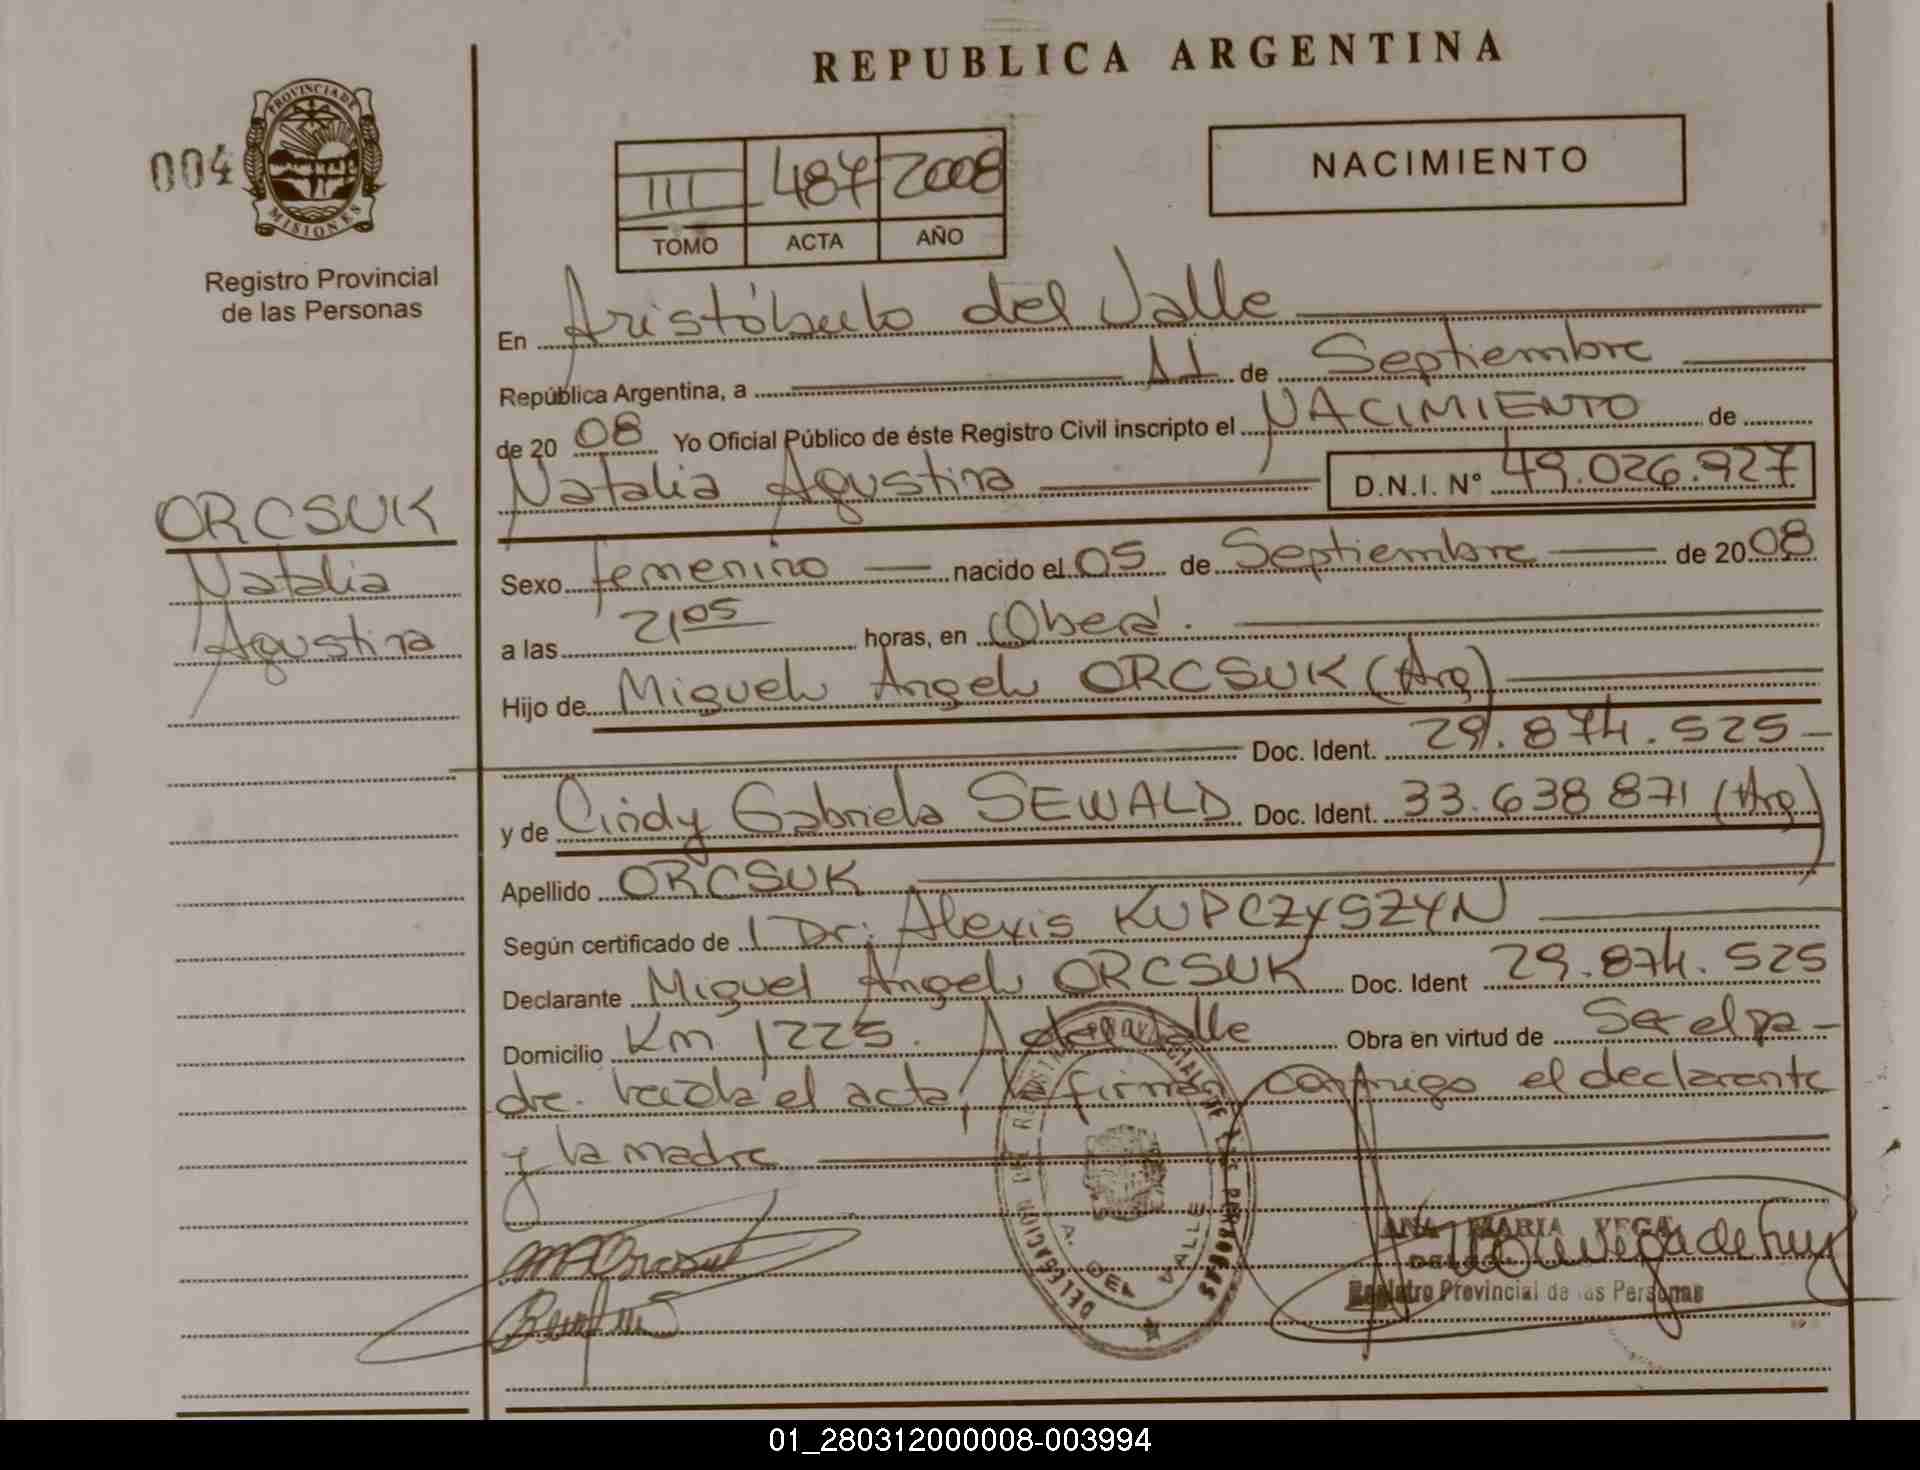 REPUBLICA ARGENTINA
004
PROVINCIA DE
MISIONES
Registro Provincial
de las Personas
III 487 2008
TOMO ACTA AÑO
NACIMIENTO
ORCSUK
Natalia
Agustina
En Aristóbulo del Valle
República Argentina, a 11 de Septiembre
de 2008 Yo Oficial Público de éste Registro Civil inscripto el NACIMIENTO de
Natalia Agustina D.N.I. N° 49.026.927
Sexo femenino nacido el 05 de Septiembre de 2008
a las 21,05 horas, en Oberá.
Hijo de Miguel Angel ORCSUK (Arg)
Doc. Ident. 29.874.525
y de Cindy Gabriela SEWALD Doc. Ident. 33.638871 (Arg)
Apellido ORCSUK
Según certificado de Dr: Alexis KUPCZYSZYN
Declarante Miguel Angel ORCSUK Doc. Ident 29.874.525
Domicilio Km 1225. A del Valle Obra en virtud de Ser el pa-
dre. Leída el acta, la firman conmigo el declarante
y la madre
DELEGACION
A. DEL VALLE
ANA MARIA VEGA
Registro Provincial de las Personas
01_280312000008-003994